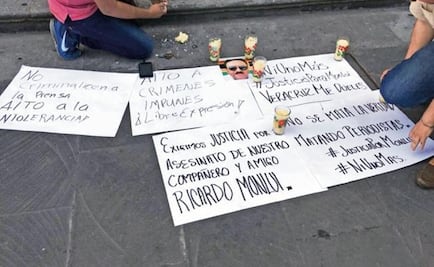 No
Criminalicen a
la Prensa
ALTO a la
VIOLENCIA!
ALTO A
CRIMENES
IMPUNES
¡Libre Expresión!
#NiUnoMás
#JusticiaParaMonlui
VERACRUZ ME DUELES
EXIGIMOS JUSTICIA POR
ASESINATO DE NUESTRO
COMPAÑERO Y AMIGO
RICARDO MONLUI.
NO SE MATA LA VERDAD
MATANDO PERIODISTAS
#JusticiaParaMonlui
#NiUnoMas